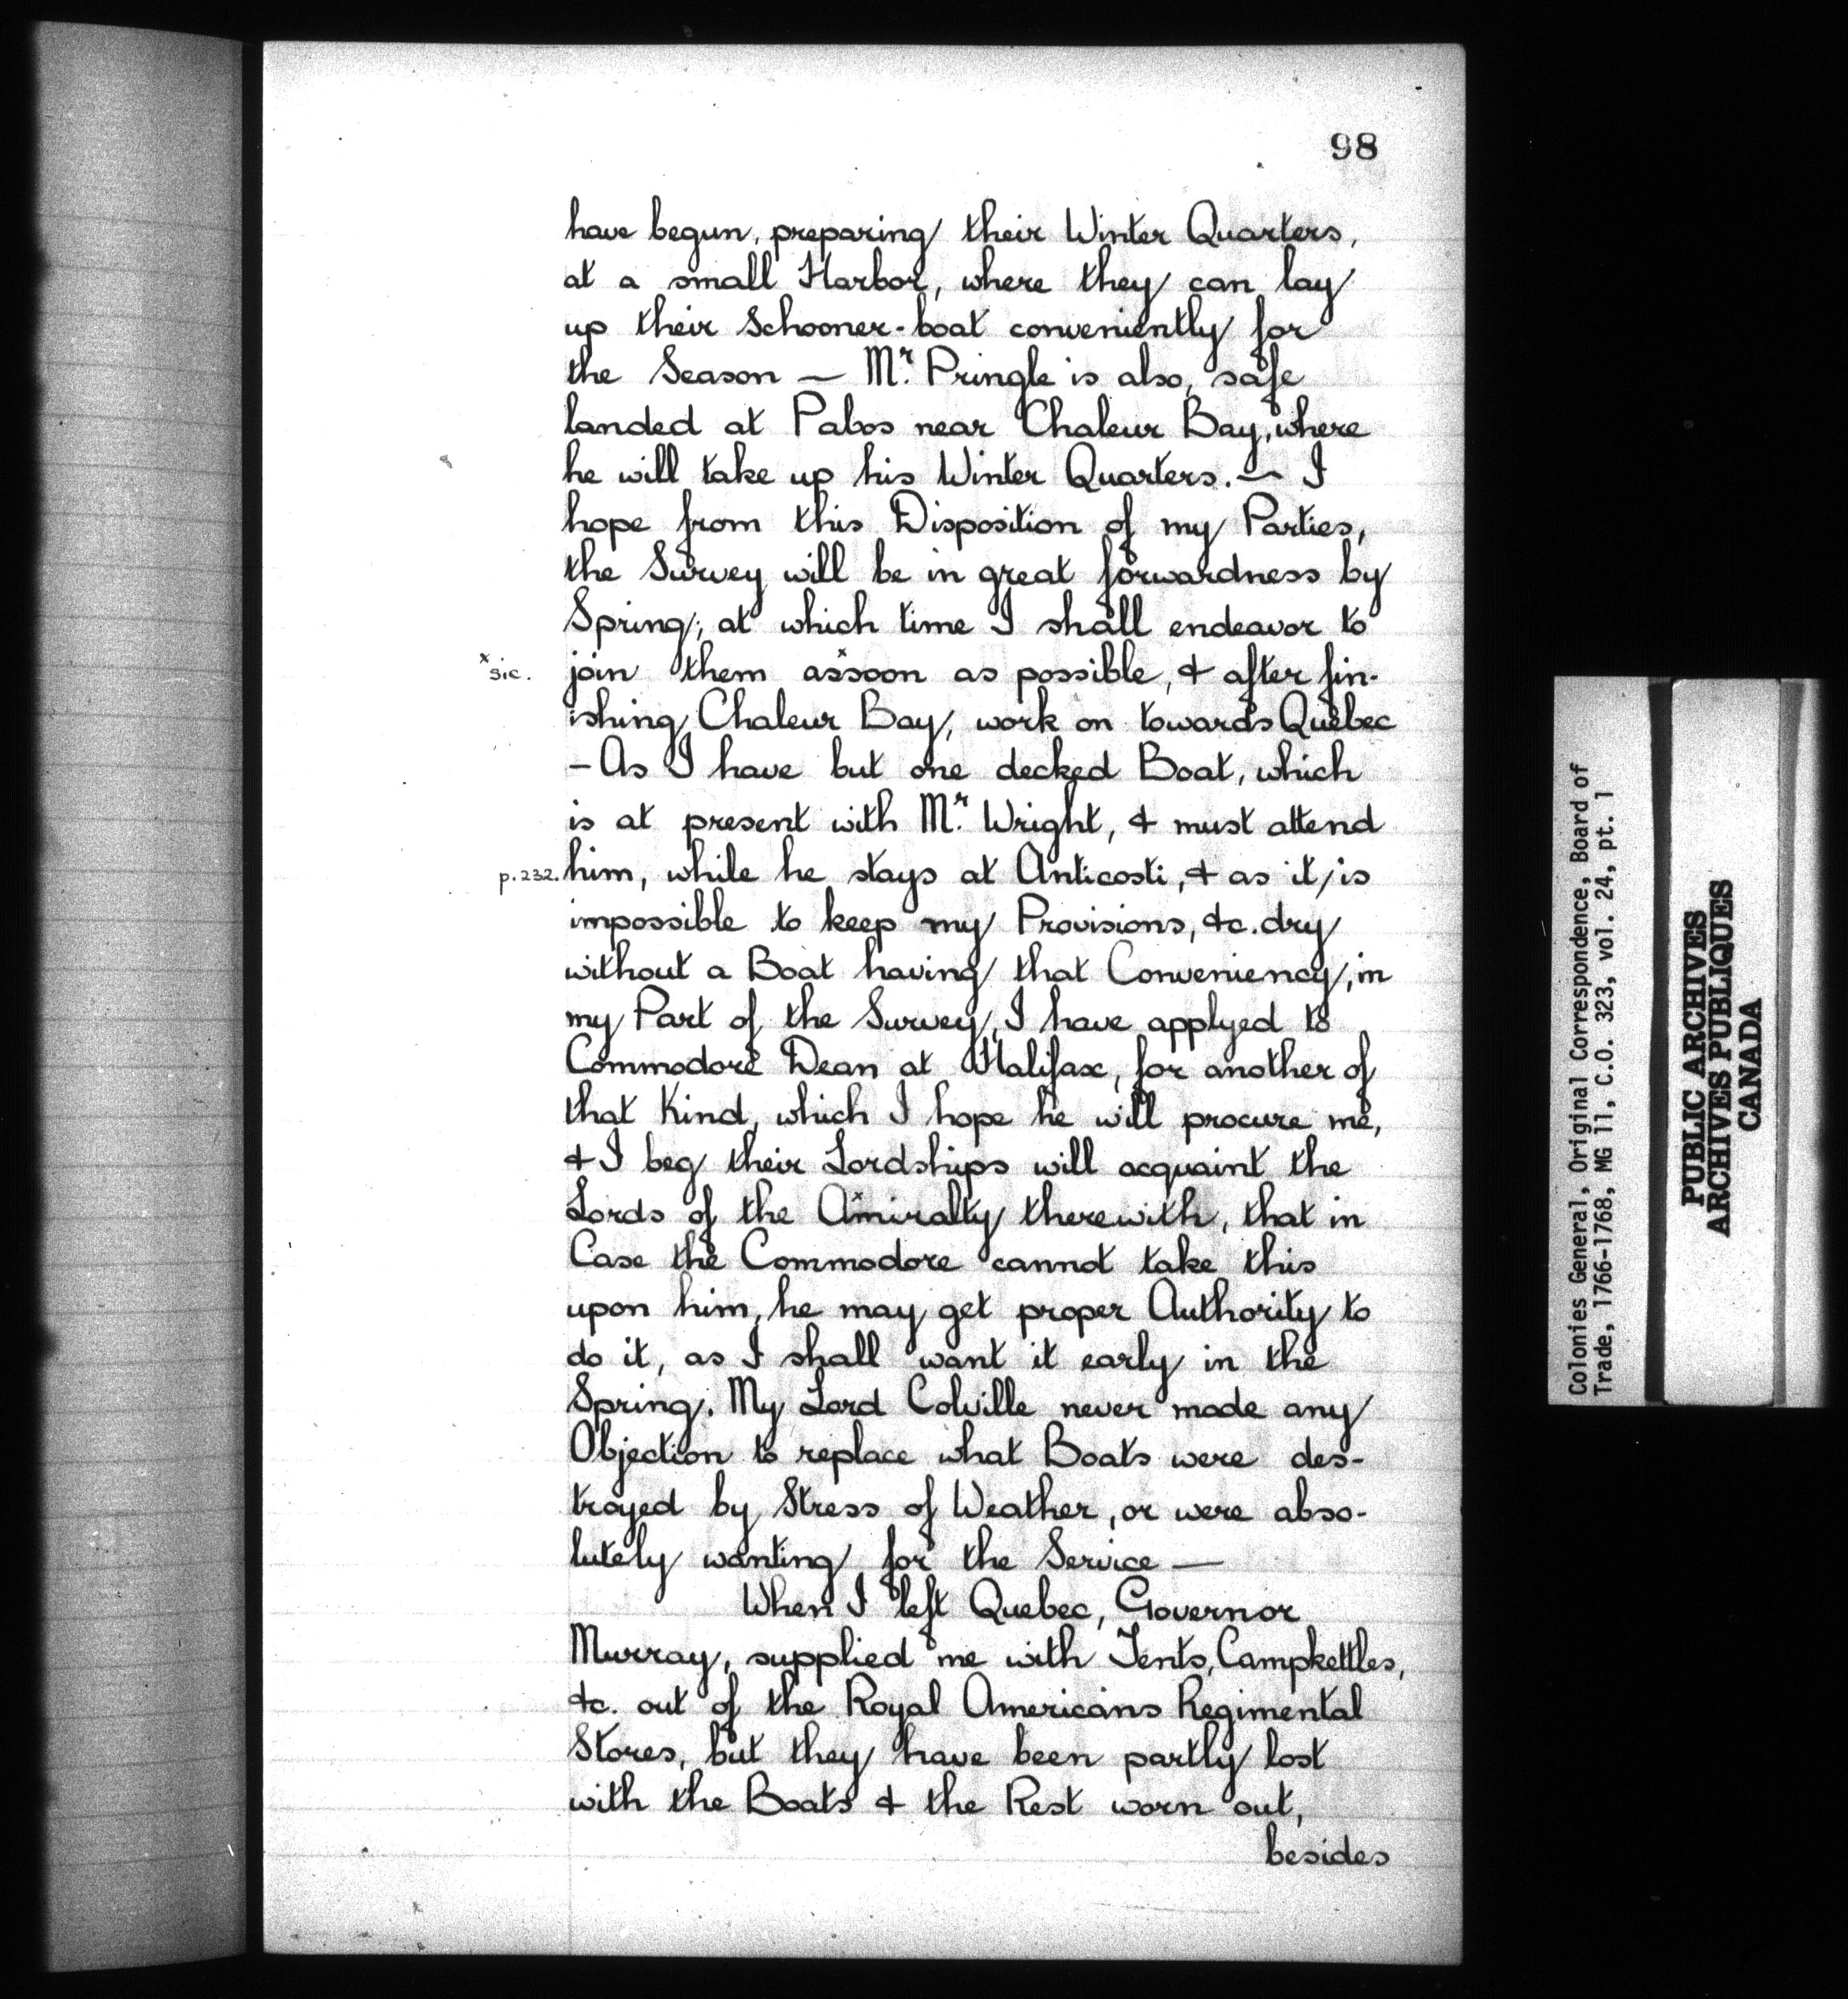 98
have begun, preparing their Winter Quarters,
at a small Harbor, where they can lay
up their Schooner-boat conveniently for
the Season — Mr. Pringle is also, safe
landed at Pabos near Chaleur Bay, where
he will take up his Winter Quarters. — I
hope from this Disposition of my Parties,
the Survey will be in great forwardness by
Spring; at which time I shall endeavor to
x sic.
join them assoon as possible, & after fin-
ishing Chaleur Bay, work on towards Quebec
— As I have but one decked Boat, which
is at present with Mr. Wright, & must attend
p. 232.
him, while he stays at Anticosti, & as it / is
impossible to keep my Provisions, &c. dry
without a Boat having that Conveniency, in
my Part of the Survey, I have applyed to
Commodore Dean at Halifax, for another of
that Kind, which I hope he will procure me,
& I beg their Lordships will acquaint the
Lords of the Amiralty therewith, that in
Case the Commodore cannot take this
upon him, he may get proper Authority to
do it, as I shall want it early in the
Spring. My Lord Colville never made any
Objection to replace what Boats were des-
troyed by Stress of Weather, or were abso-
lutely wanting for the Service —
When I left Quebec, Governor
Murray, supplied me with Tents, Campkettles,
&c. out of the Royal Americans Regimental
Stores, but they have been partly lost
with the Boats & the Rest worn out,
besides
Colonies General, Original Correspondence, Board of
Trade, 1766-1768, MG 11, C.O. 323, vol. 24, pt. 1
PUBLIC ARCHIVES
ARCHIVES PUBLIQUES
CANADA